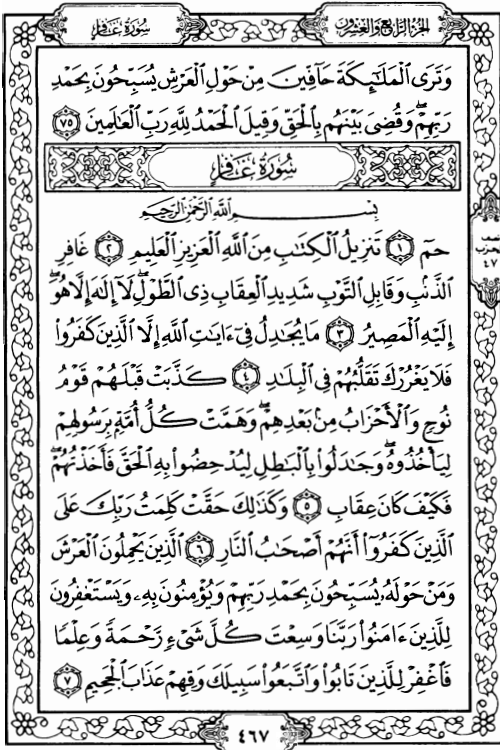 الجُزْءُ الرَّابِعُ وَالْعِشْرُونَ
سُورَةُ غَافِرٍ
وَتَرَى الْمَلَٰٓئِكَةَ حَآفِّينَ مِنْ حَوْلِ الْعَرْشِ يُسَبِّحُونَ بِحَمْدِ
رَبِّهِمْ ۖ وَقُضِىَ بَيْنَهُم بِالْحَقِّ وَقِيلَ الْحَمْدُ لِلَّهِ رَبِّ الْعَٰلَمِينَ ٧٥
سُورَةُ غَافِرٍ
بِسْمِ اللَّهِ الرَّحْمَٰنِ الرَّحِيمِ
حمٓ ١ تَنزِيلُ الْكِتَٰبِ مِنَ اللَّهِ الْعَزِيزِ الْعَلِيمِ ٢ غَافِرِ
الذَّنۢبِ وَقَابِلِ التَّوْبِ شَدِيدِ الْعِقَابِ ذِى الطَّوْلِ ۖ لَآ إِلَٰهَ إِلَّا هُوَ ۖ
إِلَيْهِ الْمَصِيرُ ٣ مَا يُجَٰدِلُ فِىٓ ءَايَٰتِ اللَّهِ إِلَّا الَّذِينَ كَفَرُوا۟
فَلَا يَغْرُرْكَ تَقَلُّبُهُمْ فِى الْبِلَٰدِ ٤ كَذَّبَتْ قَبْلَهُمْ قَوْمُ
نُوحٍ وَالْأَحْزَابُ مِنۢ بَعْدِهِمْ ۖ وَهَمَّتْ كُلُّ أُمَّةٍۭ بِرَسُولِهِمْ
لِيَأْخُذُوهُ ۖ وَجَٰدَلُوا۟ بِالْبَٰطِلِ لِيُدْحِضُوا۟ بِهِ الْحَقَّ فَأَخَذْتُهُمْ ۖ
فَكَيْفَ كَانَ عِقَابِ ٥ وَكَذَٰلِكَ حَقَّتْ كَلِمَتُ رَبِّكَ عَلَى
الَّذِينَ كَفَرُوٓا۟ أَنَّهُمْ أَصْحَٰبُ النَّارِ ٦ الَّذِينَ يَحْمِلُونَ الْعَرْشَ
وَمَنْ حَوْلَهُۥ يُسَبِّحُونَ بِحَمْدِ رَبِّهِمْ وَيُؤْمِنُونَ بِهِۦ وَيَسْتَغْفِرُونَ
لِلَّذِينَ ءَامَنُوا۟ رَبَّنَا وَسِعْتَ كُلَّ شَىْءٍ رَّحْمَةً وَعِلْمًا
فَاغْفِرْ لِلَّذِينَ تَابُوا۟ وَاتَّبَعُوا۟ سَبِيلَكَ وَقِهِمْ عَذَابَ الْجَحِيمِ ٧
نصف
الحزب
٤٧
٤٦٧